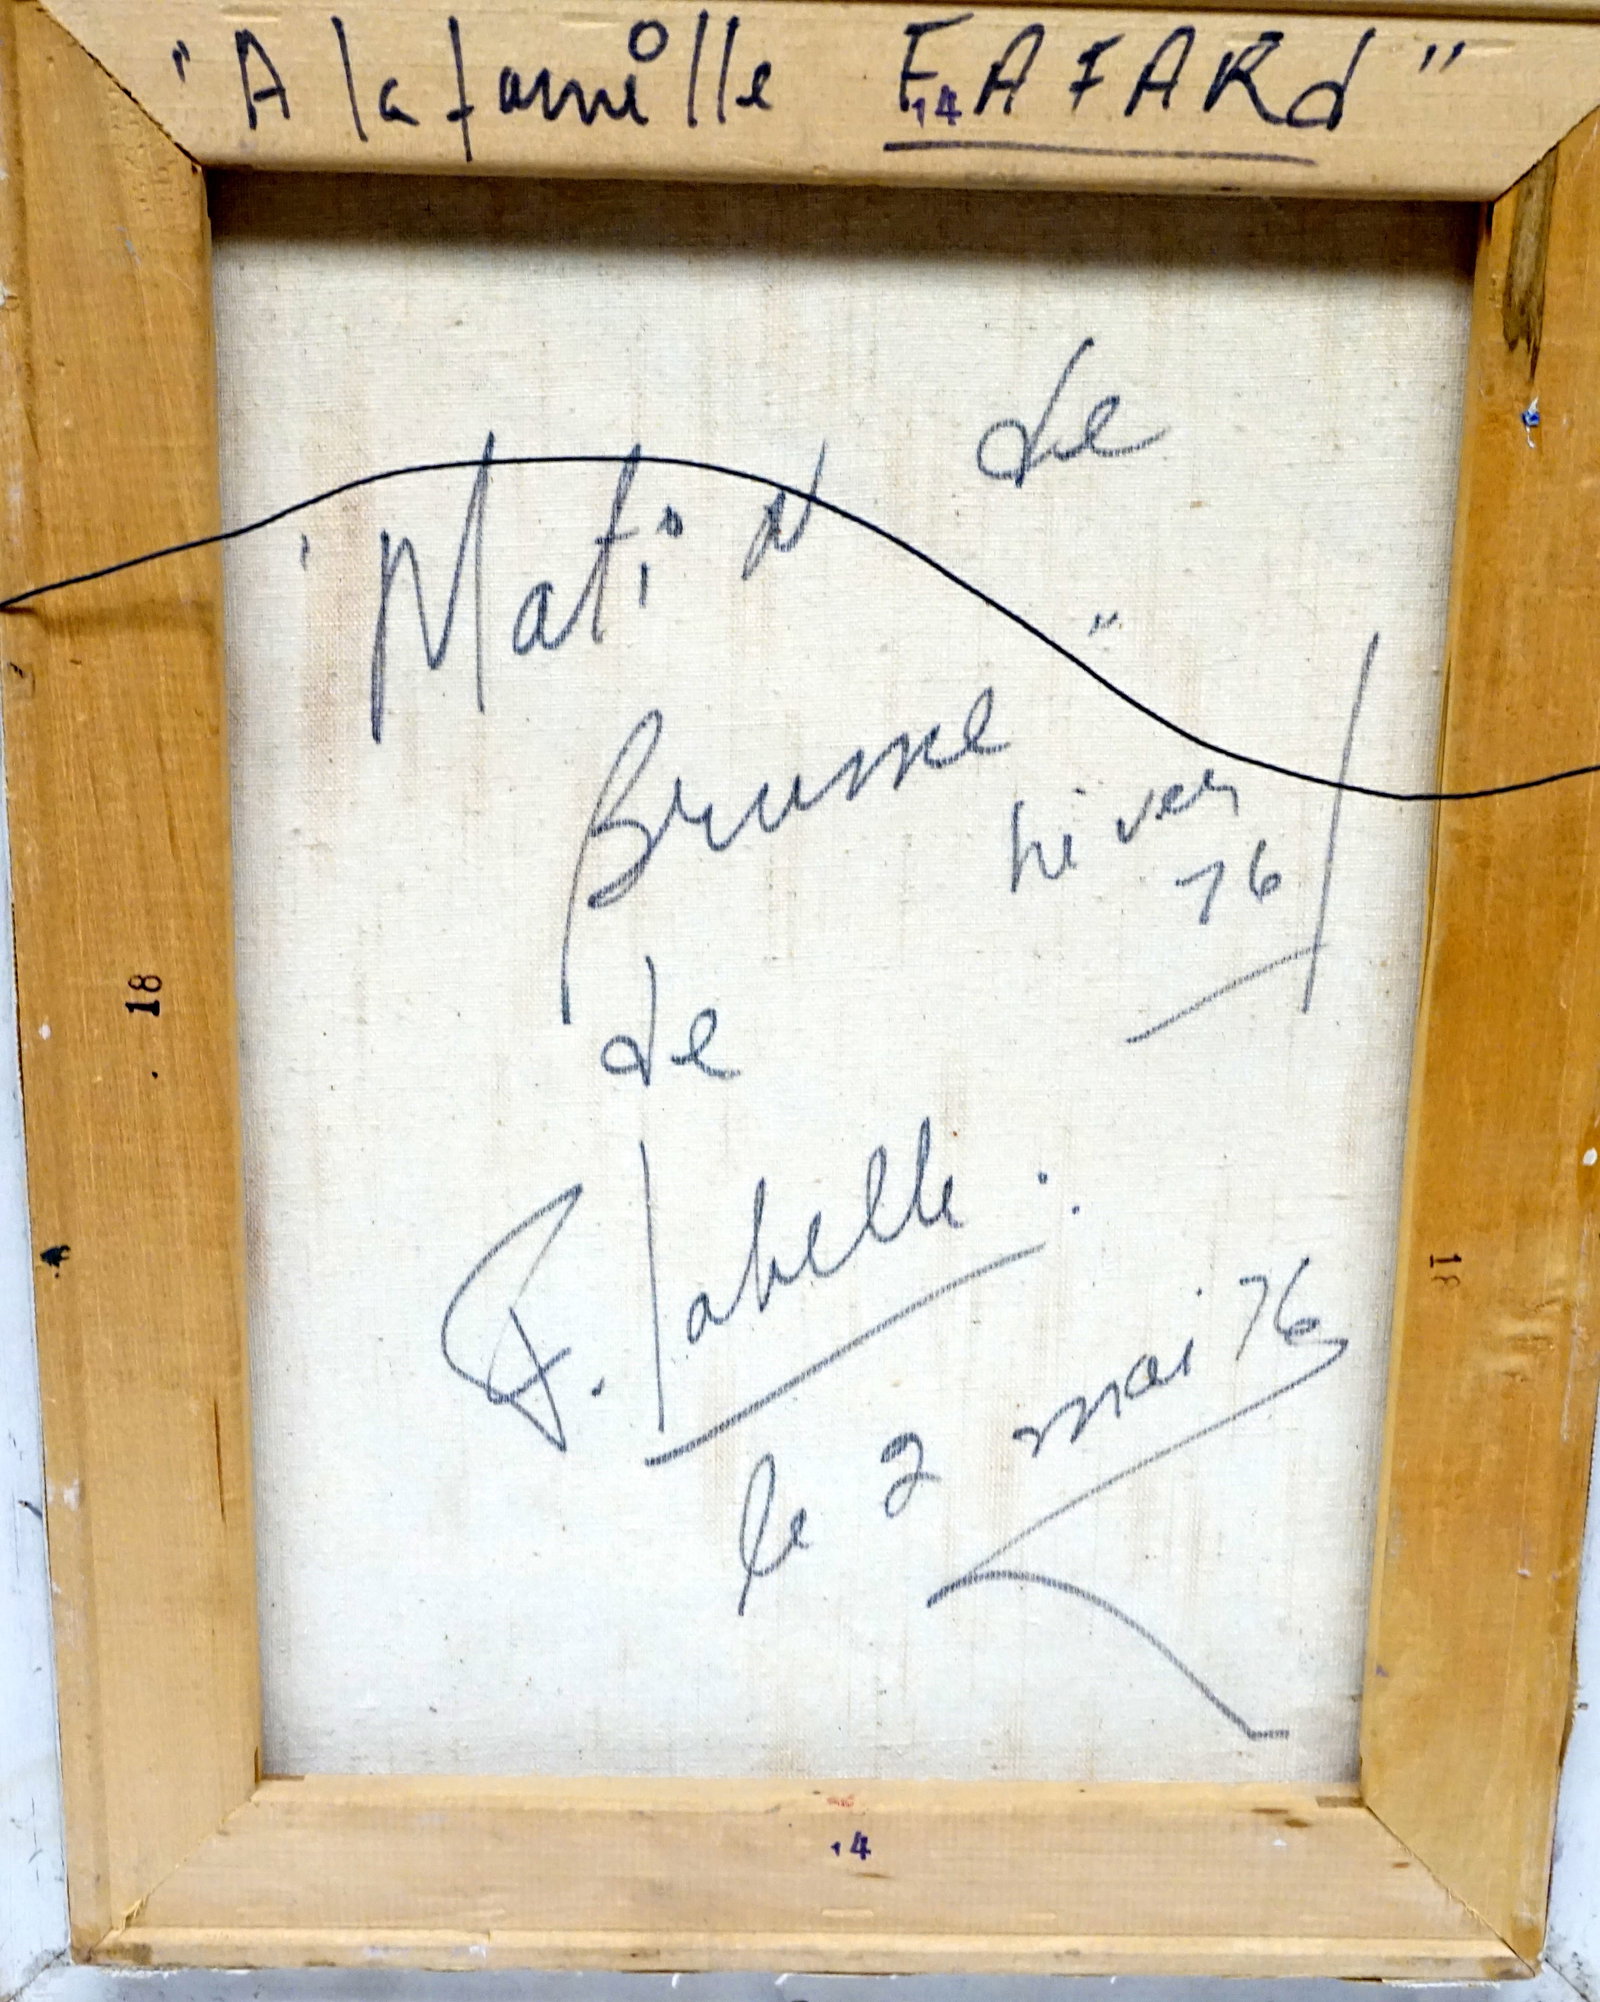 "A la famille FAFARd"
14
"Matin de
Brume"
hiver
76
de
F. Labelle.
le 2 mai 76
18
18
14